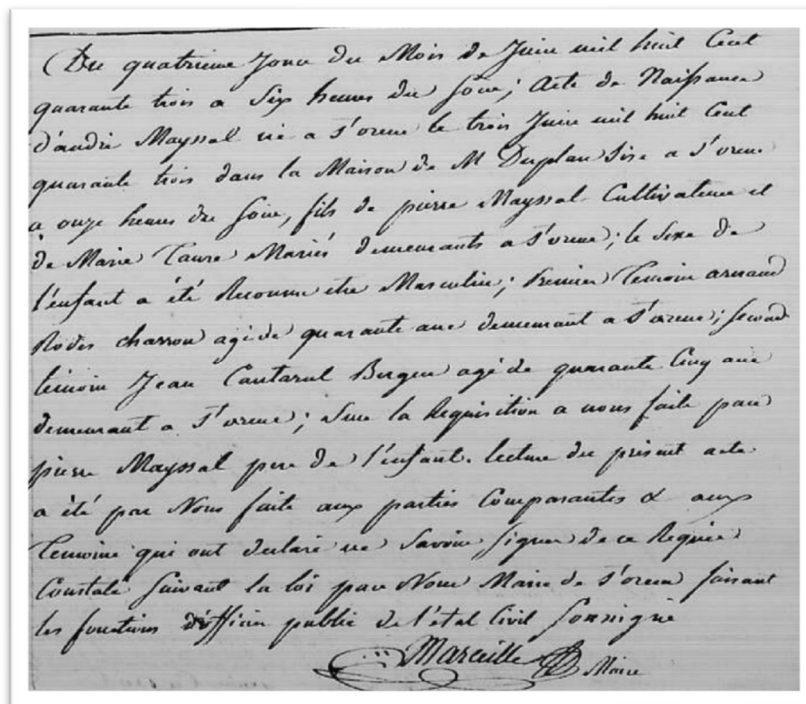 Du quatrieme Jour du Mois de Juin mil huit Cent
quarante trois a Six heures du Soir; Acte de Naissance
d'andré Mayssal né a St orens le trois Juin mil huit Cent
quarante trois dans la Maison de M Duplan Sise a St orens
a onze heures du Soir, fils de pierre Mayssal Cultivateur et
de Marie Mariés demeurants a St orens; le Sexe de
l'enfant a été Reconnu etre Masculin; Premier Temoin arnaud
Rodes charron agé de quarante ans demeurant a St orens; Second
temoin Jean agé de quarante Cinq ans
demeurant a St orens; Sur la Requisition a nous faite par
pierre Mayssal pere de l'enfant. lecture du présent acte
a été par Nous faite aux parties Comparantes & aux
Temoins qui ont declaré ne Savoir Signer de ce Requis
Constaté Suivant la loi par Nous Maire de St orens faisant
les fonctions d'officier public de l'état Civil Soussigné
Marceille Maire